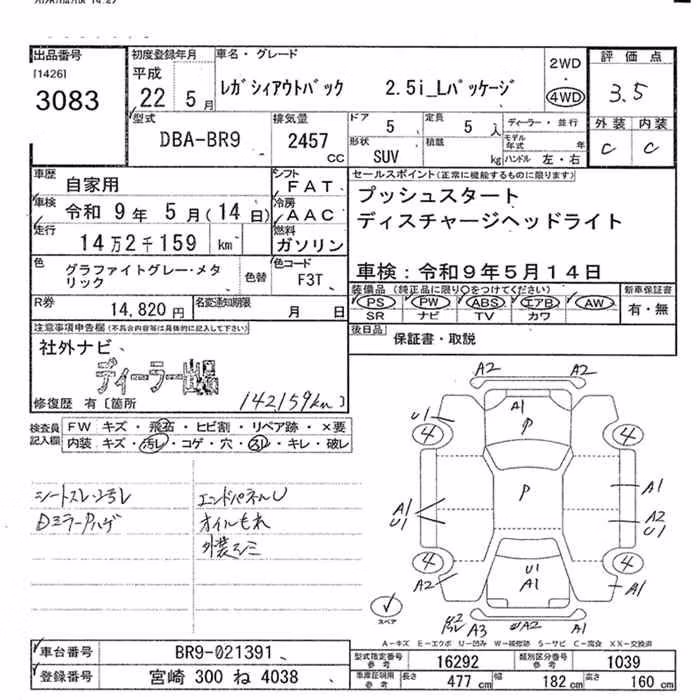 出品番号 初度登録年月 車名・グレード 2WD 評価点
[1426] 平成 ・
3083 22年 5月 レガシィアウトバック 2.5i_Lパッケージ 4WD 3.5
型式 排気量 ドア 5 定員 5人 ディーラー・並行 外装 内装
DBA-BR9 2457cc 形状 SUV 積載 kg モデル年式 年 C C
ハンドル 左・右
車歴 自家用 シフト FAT セールスポイント(正常に機能するものに限ります)
車検 令和 9年 5月(14日) 冷房 AAC プッシュスタート
走行 14万2千159 km 燃料 ガソリン ディスチャージヘッドライト
色 グラファイトグレー・メタリック 色替 色コード F3T 車検：令和９年５月１４日
装備品 (純正品に限り○をつけてください) 新車保証書
R券 14,820円 名変通知期限 月 日 PS PW ABS エアB AW 有・無
SR ナビ TV カワ
注意事項申告欄(不具合内容等は具体的に記入して下さい) 後日品 保証書・取説
社外ナビ、
ディーラー出品
修復歴 有[箇所 142159km)
検査員記入欄 FW キズ・飛石・ヒビ割・リペア跡・×要
内装 キズ・汚レ・コゲ・穴・スレ・キレ・破レ
シートスレ・汚レ エンドパネルU
Dミラーハゲ オイルもれ
外装キズ
A2 A2
A1 P
U1
4 4
P
A1 U1 A1
A2 U1
4 4
A2 U1 A1 A1
スペア A3 A2 A1
A-キズ E-エクボ U-凹み W-補修跡 S-サビ C-腐食 XX-交換済
車台番号 BR9-021391 型式指定番号 参考 16292 類別区分番号 参考 1039
登録番号 宮崎 300 ね 4038 車庫証明用 参考 長さ 477cm 幅 182cm 高さ 160cm